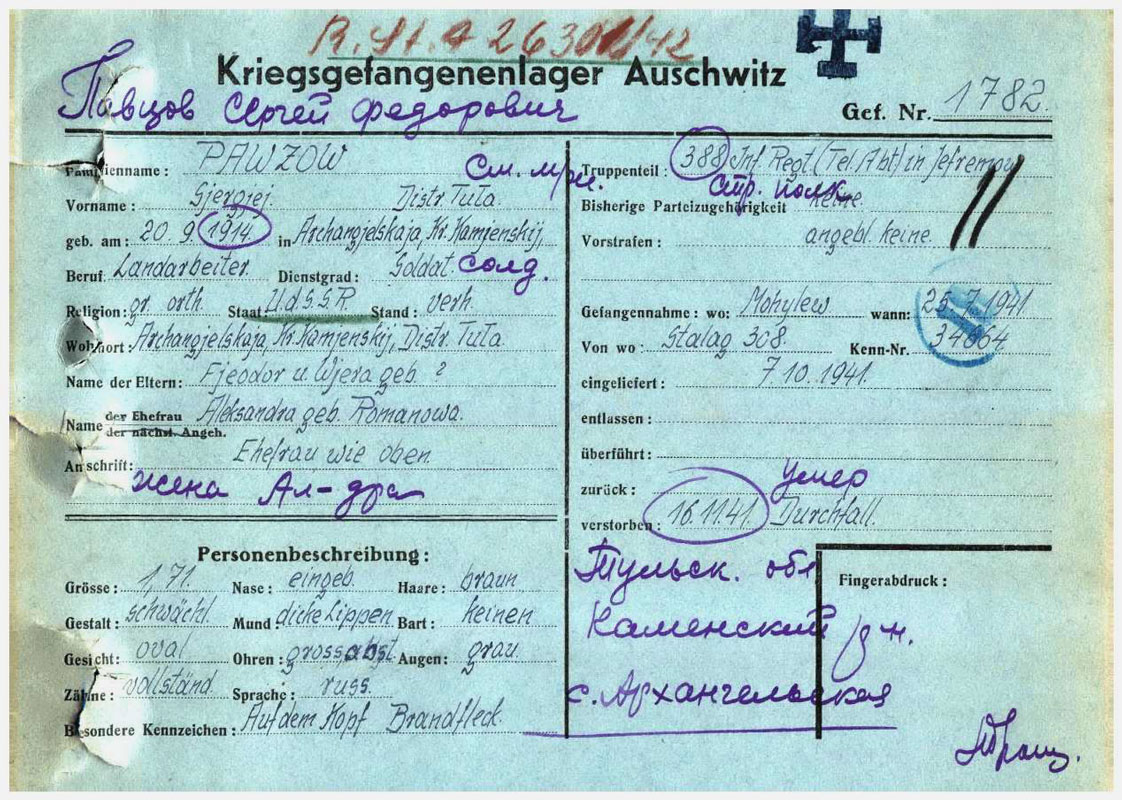 R.St.A 2630/1/42
Kriegsgefangenenlager Auschwitz
Павцов Сергей Федорович
Gef. Nr. 1782.
Familienname : PAWZOW
См. мрц.
Vorname : Sjergjej. Distr Tuła
geb. am : 20 9. 1914. in Archangjelskaja, Kr. Kamjenskij,
Beruf Landarbeiter. Dienstgrad : Soldat. солд.
Religion: gr. orth. Staat U.d.S.S.R Stand : verh.
Wohnort: Archangjelskaja, Kr. Kamjenskij, Distr Tuła
Name der Eltern: Fjeodor u. Wjera geb. ?
Name der Ehefrau Aleksandra geb. Romanowa.
der nächst. Angeh.
Anschrift: Ehefrau wie oben.
жена Ал-дра
Personenbeschreibung:
Grösse: 1,71. Nase: eingeb. Haare: braun
Gestalt: schwächl. Mund: dicke Lippen. Bart: keinen
Gesicht: oval Ohren: gross abst. Augen: grau.
Zähne: vollständ. Sprache: russ.
Besondere Kennzeichen: Auf dem Kopf Brandfleck.
Truppenteil : 388 Inf. Regt. (Tel. Abt) in Jefremow
стр. полк
Bisherige Parteizugehörigkeit keine.
Vorstrafen : angebl. keine.
Gefangennahme : wo: Mohylew wann: 25.7.1941
Von wo : Stalag 308. Kenn-Nr. 34064
eingeliefert : 7.10.1941.
entlassen :
überführt :
zurück : умер
verstorben : 16.11.41. Durchfall.
Тульск. обл
Каменский р-н.
с. Архангельская
Fingerabdruck :